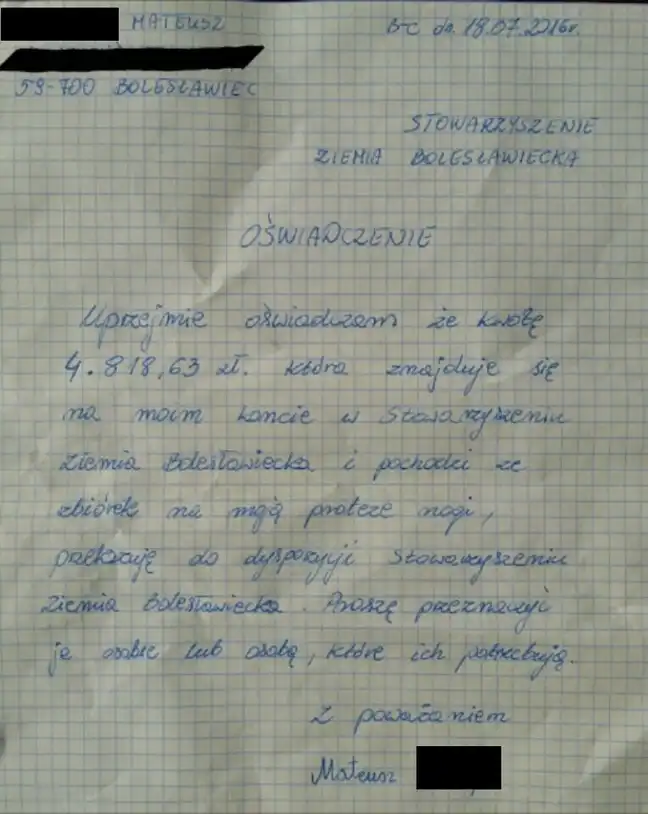 MATEUSZ
B-c dn. 18.07.2016r.
59-700 BOLESŁAWIEC
STOWARZYSZENIE
ZIEMIA BOLESŁAWIECKA
OŚWIADCZENIE
Uprzejmie oświadczam że kwotę
4.818,63 zł. która znajduje się
na moim koncie w Stowarzyszeniu
Ziemia Bolesławiecka i pochodzi ze
zbiórek na moją protezę nogi,
przekazuję do dyspozycji Stowarzyszeniu
Ziemia Bolesławiecka. Proszę przeznaczyć
je osobie lub osobą, które ich potrzebują.
Z poważaniem
Mateusz